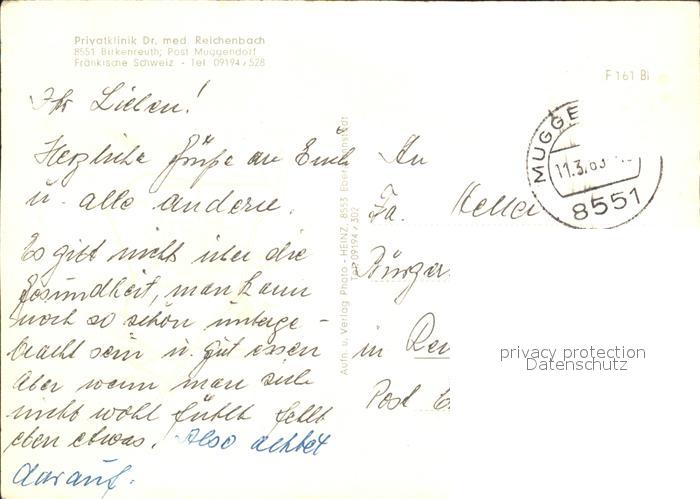 Privatklinik Dr. med. Reichenbach
8551 Birkenreuth; Post Muggendorf
Fränkische Schweiz - Tel. 09194 / 528
F 161 Bi
Ihr Lieben!
Herzliche Grüße an Euch
u. alle anderen.
Es geht nicht über die
Gesundheit, man kann
noch so schön unterge-
bracht sein u. gut essen
aber wenn man sich
nicht wohl fühlt fehlt
eben etwas. Also achtet
darauf.
Aufn. u. Verlag Photo-HEINZ, 8553 Ebermannstadt
Tel. 09194 / 302
MUGGE
11.3.
8551
An
Fa.
Bürger
in
Post
privacy protection
Datenschutz